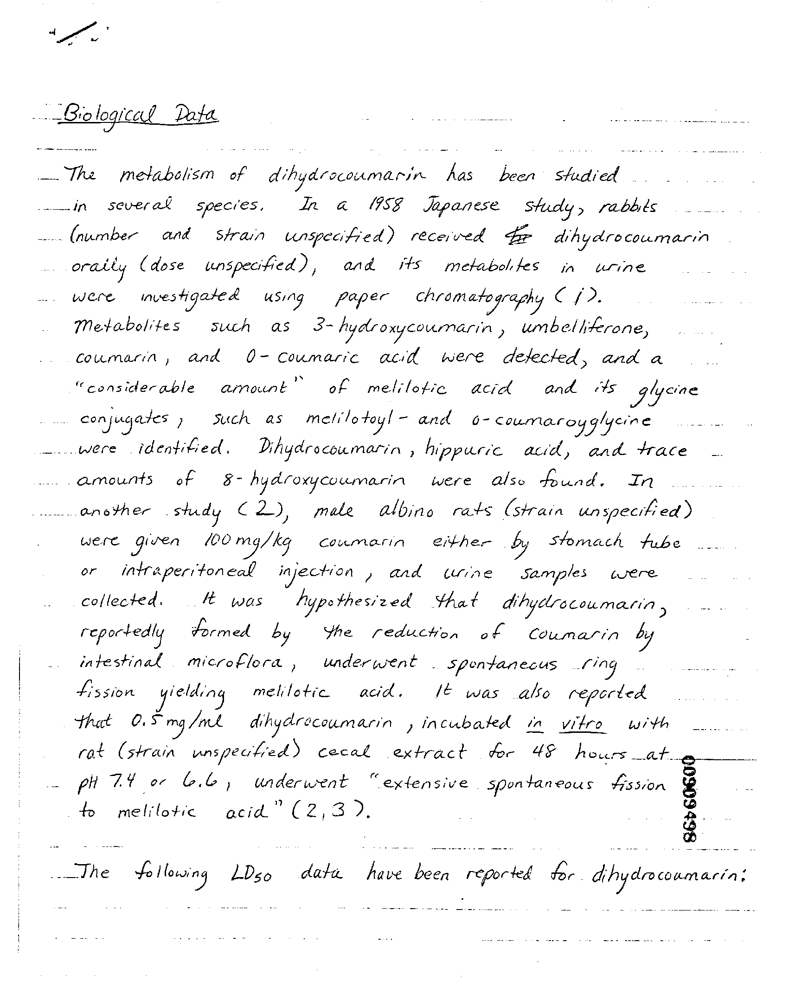 Biological Data
The metabolism of dihydrocoumarin has been studied
in several species. In a 1958 Japanese study, rabbits
(number and strain unspecified) received dihydrocoumarin
orally (dose unspecified), and its metabolites in urine
were investigated using paper chromatography (1).
Metabolites such as 3-hydroxycoumarin, umbelliferone,
coumarin, and o-coumaric acid were detected, and a
"considerable amount" of melilotic acid and its glycine
conjugates, such as melilotoyl- and o-coumaroyglycine
were identified. Dihydrocoumarin, hippuric acid, and trace
amounts of 8-hydroxycoumarin were also found. In
another study (2), male albino rats (strain unspecified)
were given 100 mg/kg coumarin either by stomach tube
or intraperitoneal injection, and urine samples were
collected. It was hypothesized that dihydrocoumarin,
reportedly formed by the reduction of coumarin by
intestinal microflora, underwent spontaneous ring
fission yielding melilotic acid. It was also reported
that 0.5 mg/ml dihydrocoumarin, incubated in vitro with
rat (strain unspecified) cecal extract for 48 hours at
pH 7.4 or 6.6, underwent "extensive spontaneous fission
to melilotic acid" (2,3).
00909498
The following LD50 data have been reported for dihydrocoumarin: